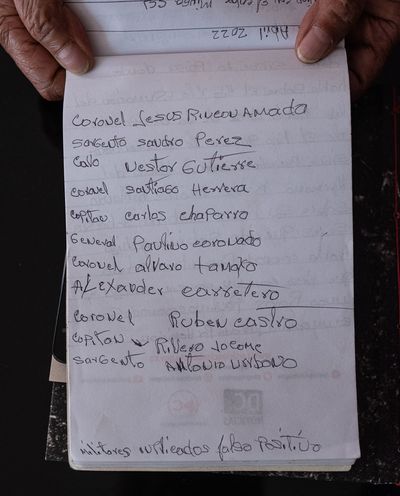 Abril 2022
Coronel Jesus Rincon Amado
Sargento sandro Perez
Cabo Nestor Gutierre
Coronel santiago Herrera
Capitan carlos chaparro
General Paulino coronado
Coronel alvaro tamayo
Alexander carretero
Coronel Ruben Castro
Capitan Rivero Jocome
Sargento Antonio Urbano
DC
NOTICIAS
militares inplicados falso Positivo